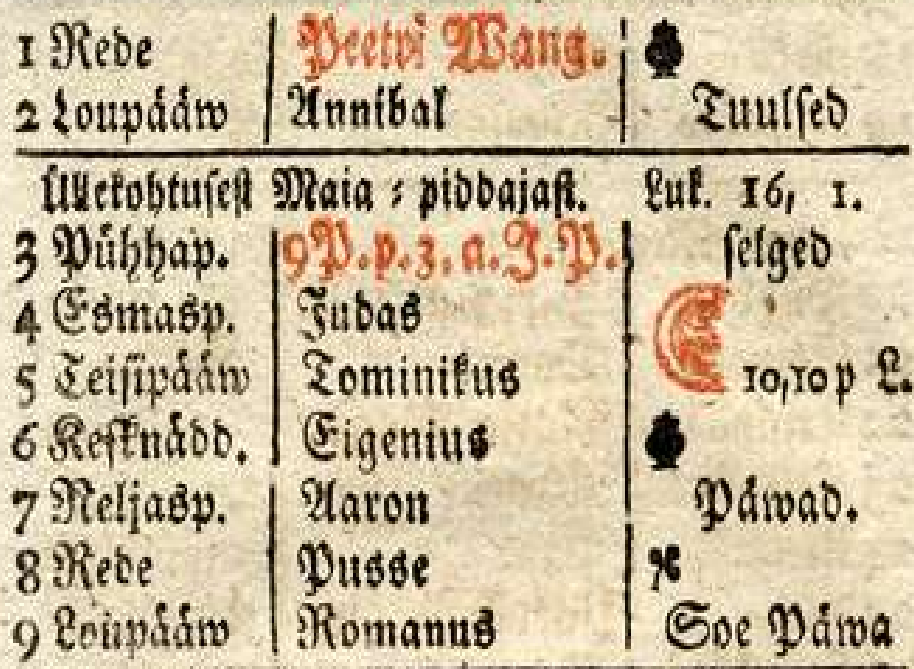 1 Rede Peetri Wang.
2 Loupääw Annibal Tuulsed
Üllekohtusest Maia-piddajast. Luk. 16, 1.
3 Pühhap. 9 P. p. z. a. J. P. selged
4 Esmasp. Judas
5 Teisipääw Tominikus 10,10 p L.
6 Kesknädd. Eigenius
7 Neljasp. Aaron Päwad.
8 Rede Pusse
9 Loupääw Romanus Soe Päwa